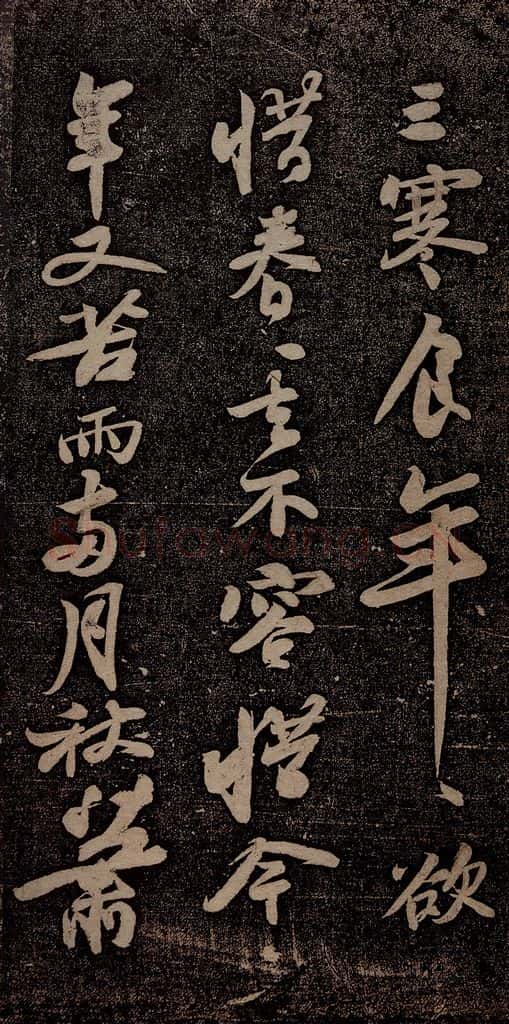 三寒食年、欲
惜春、去不容惜今
年又苦雨兩月秋蕭
Shufawang.CN